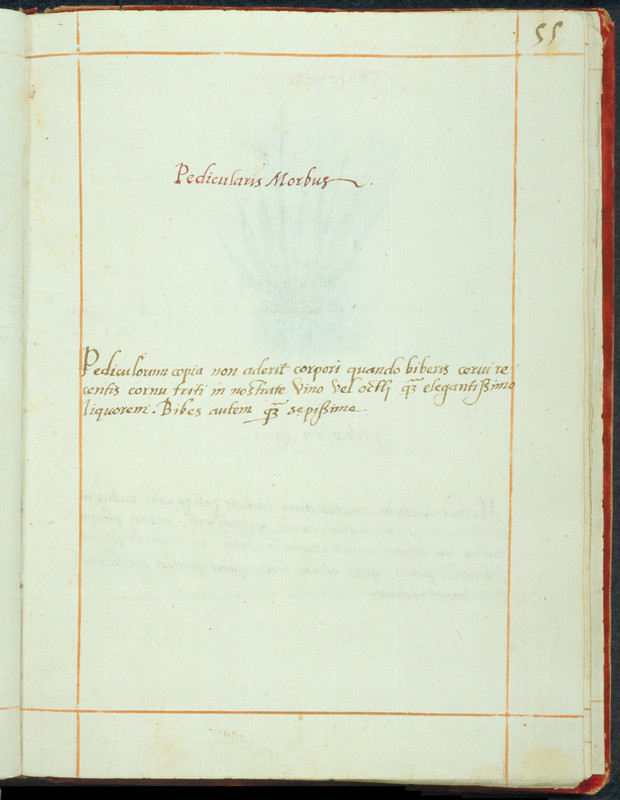 55
Pedicularis Morbus.
Pediculorum copia non aderit corpori quando biberis cerui re
centis cornu triti in nostrate vino vel octlj qz̄ elegantißimo
liquorem. Bibes autem qz̄ sepißime.